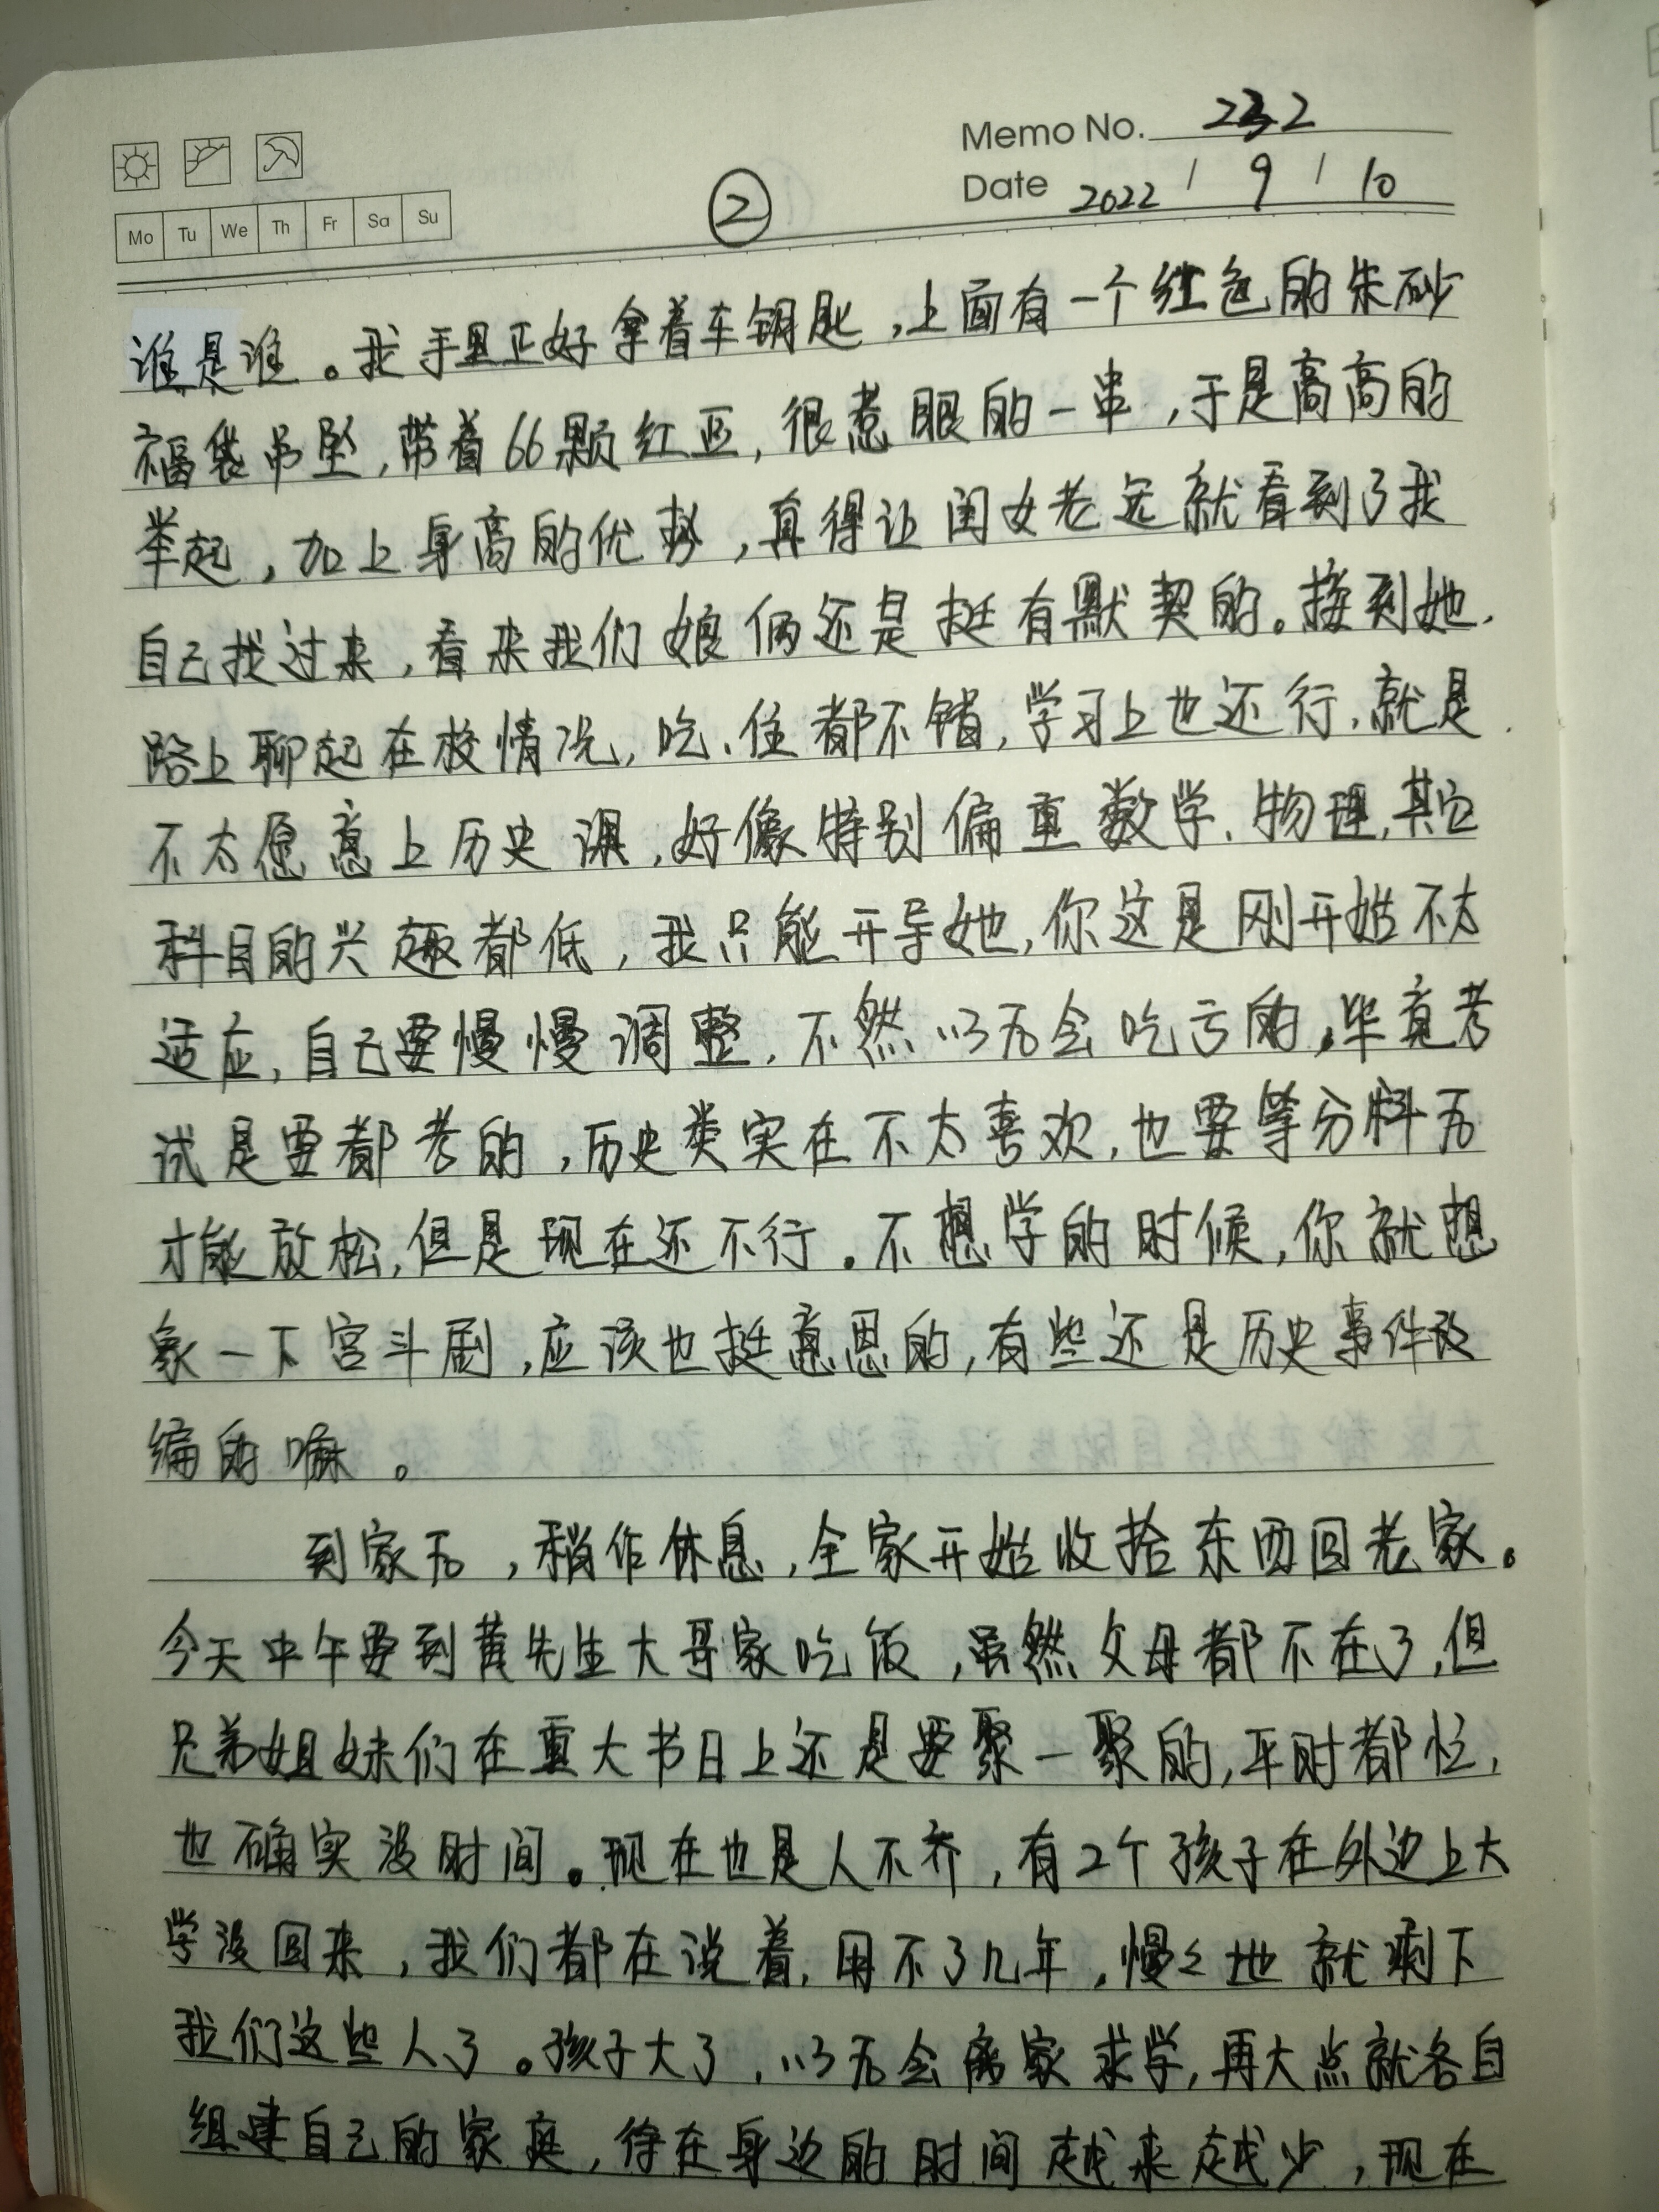 Memo No. 232
Mo Tu We Th Fr Sa Su
②
Date 2022 / 9 / 10
谁是谁。我手里正好拿着车钥匙,上面有一个红色的朱砂
福袋吊坠,带着66颗红豆,很惹眼的一串,于是高高的
举起,加上身高的优势,真得让闺女老远就看到了我
自己找过来,看来我们娘俩还是挺有默契的。接到她,
路上聊起在校情况,吃、住都不错,学习上也还行,就是
不太愿意上历史课,好像特别偏重数学、物理,其它
科目的兴趣都低,我只能开导她,你这是刚开始不太
适应,自己要慢慢调整,不然以后会吃亏的,毕竟考
试是要都考的,历史类实在不太喜欢,也要等分科后
才能放松,但是现在还不行。不想学的时候,你就想
象一下宫斗剧,应该也挺意思的,有些还是历史事件改
编的嘛。
到家后,稍作休息,全家开始收拾东西回老家。
今天中午要到黄先生大哥家吃饭,虽然父母都不在了,但
兄弟姐妹们在重大节日上还是要聚一聚的,平时都忙,
也确实没时间。现在也是人不齐,有2个孩子在外边上大
学没回来,我们都在说着,用不了几年,慢々地就剩下
我们这些人了。孩子大了,以后会离家求学,再大点就各自
组建自己的家庭,待在身边的时间越来越少,现在